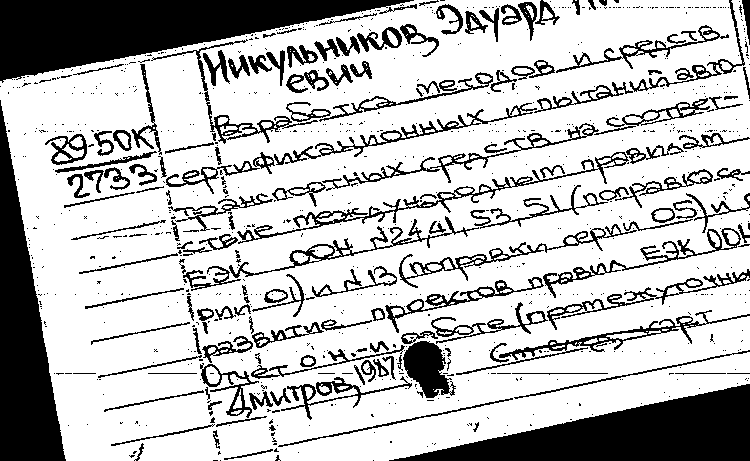 Никульников, Эдуард
евич
89-50К
2733
Разработка методов и средств
сертификационных испытаний авто
транспортных средств на соответ-
ствие международным правилам
ЕЭК ООН №24,41, 53, 51 (поправка се
рии 01) и №13 (поправки серии 05) и
развитие проектов правил ЕЭК ООН
Отчет о н.-и. работе (протежуточн
Дмитров, 1987. карт